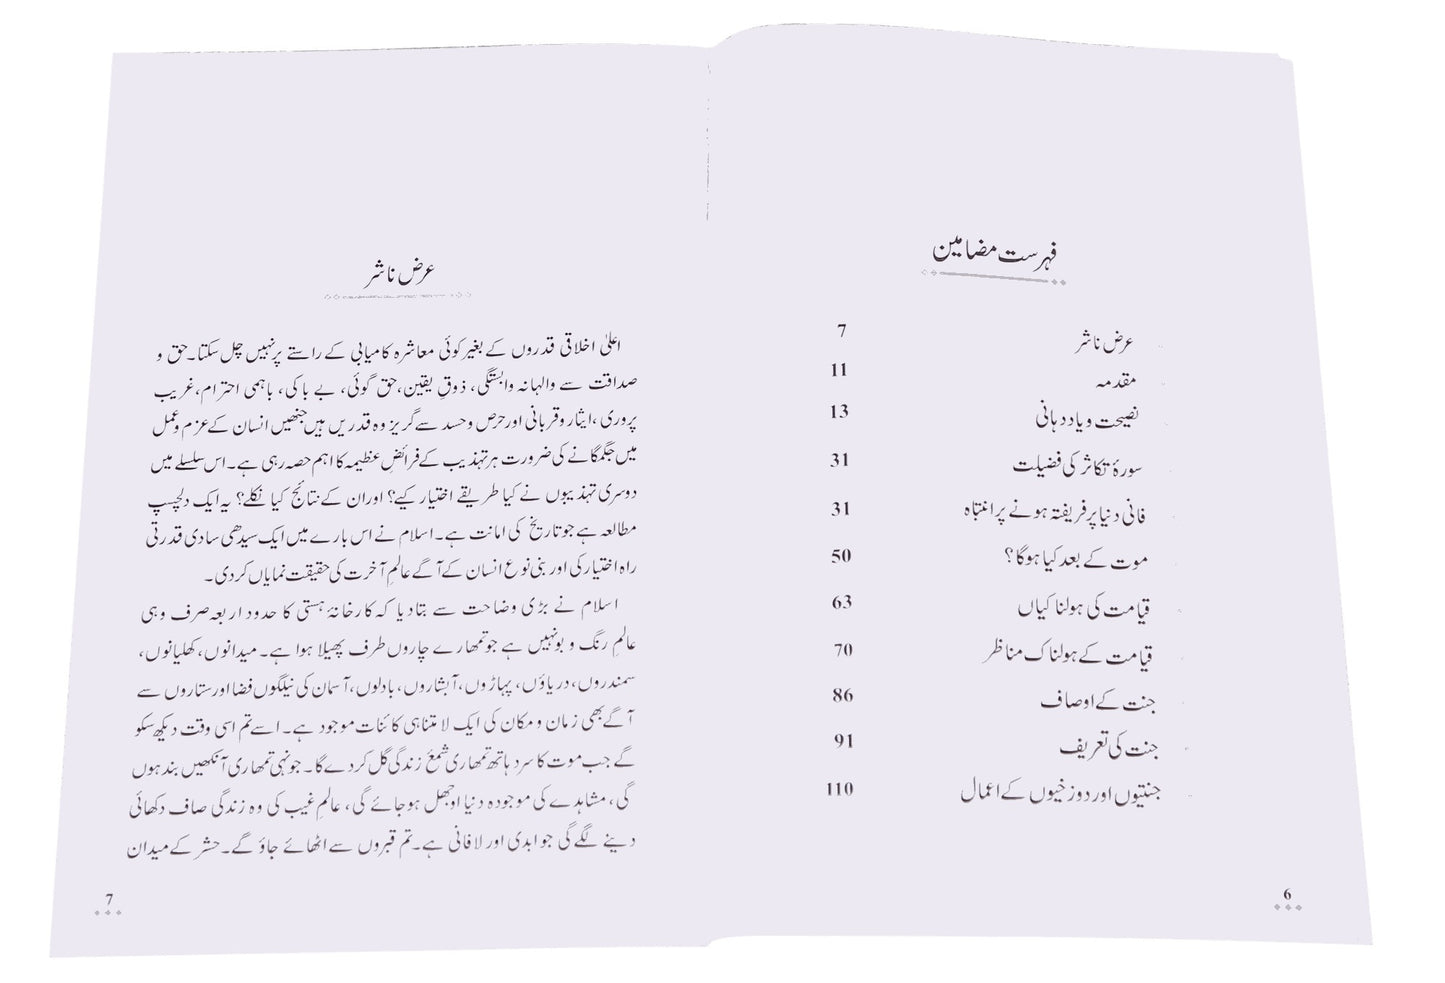 فہرست مضامین
عرض ناشر 7
مقدمہ 11
نصیحت و یاد دہانی 13
سورۂ تکاثر کی فضیلت 31
فانی دنیا پر فریفتہ ہونے پر انتباہ 31
موت کے بعد کیا ہوگا؟ 50
قیامت کی ہولناکیاں 63
قیامت کے ہولناک مناظر 70
جنت کے اوصاف 86
جنت کی تعریف 91
جنتیوں اور دوزخیوں کے اعمال 110
6
عرض ناشر
اعلیٰ اخلاقی قدروں کے بغیر کوئی معاشرہ کامیابی کے راستے پر نہیں چل سکتا۔ حق و
صداقت سے والہانہ وابستگی، ذوقِ یقین، حق گوئی، بے باکی، باہمی احترام، غریب
پروری، ایثار و قربانی اور حرص و حسد سے گریز وہ قدریں ہیں جنھیں انسان کے عزم و عمل
میں جگمگانے کی ضرورت ہر تہذیب کے فرائض عظیمہ کا اہم حصہ رہی ہے۔ اس سلسلے میں
دوسری تہذیبوں نے کیا طریقے اختیار کیے؟ اور ان کے نتائج کیا نکلے؟ یہ ایک دلچسپ
مطالعہ ہے جو تاریخ کی امانت ہے۔ اسلام نے اس بارے میں ایک سیدھی سادی قدرتی
راہ اختیار کی اور بنی نوع انسان کے آگے عالمِ آخرت کی حقیقت نمایاں کر دی۔
اسلام نے بڑی وضاحت سے بتا دیا کہ کارخانۂ ہستی کا حدود اربعہ صرف وہی
عالمِ رنگ و بو نہیں ہے جو تمھارے چاروں طرف پھیلا ہوا ہے۔ میدانوں، کھلیانوں،
سمندروں، دریاؤں، پہاڑوں، آبشاروں، بادلوں، آسمان کی نیلگوں فضا اور ستاروں سے
آگے بھی زمان و مکان کی ایک لامتناہی کائنات موجود ہے۔ اسے تم اسی وقت دیکھ سکو
گے جب موت کا سرد ہاتھ تمھاری شمعٔ زندگی گل کر دے گا۔ جونہی تمھاری آنکھیں بند ہوں
گی، مشاہدے کی موجودہ دنیا اوجھل ہو جائے گی، عالمِ غیب کی وہ زندگی صاف دکھائی
دینے لگے گی جو ابدی اور لافانی ہے۔ تم قبروں سے اٹھائے جاؤ گے۔ حشر کے میدان
7